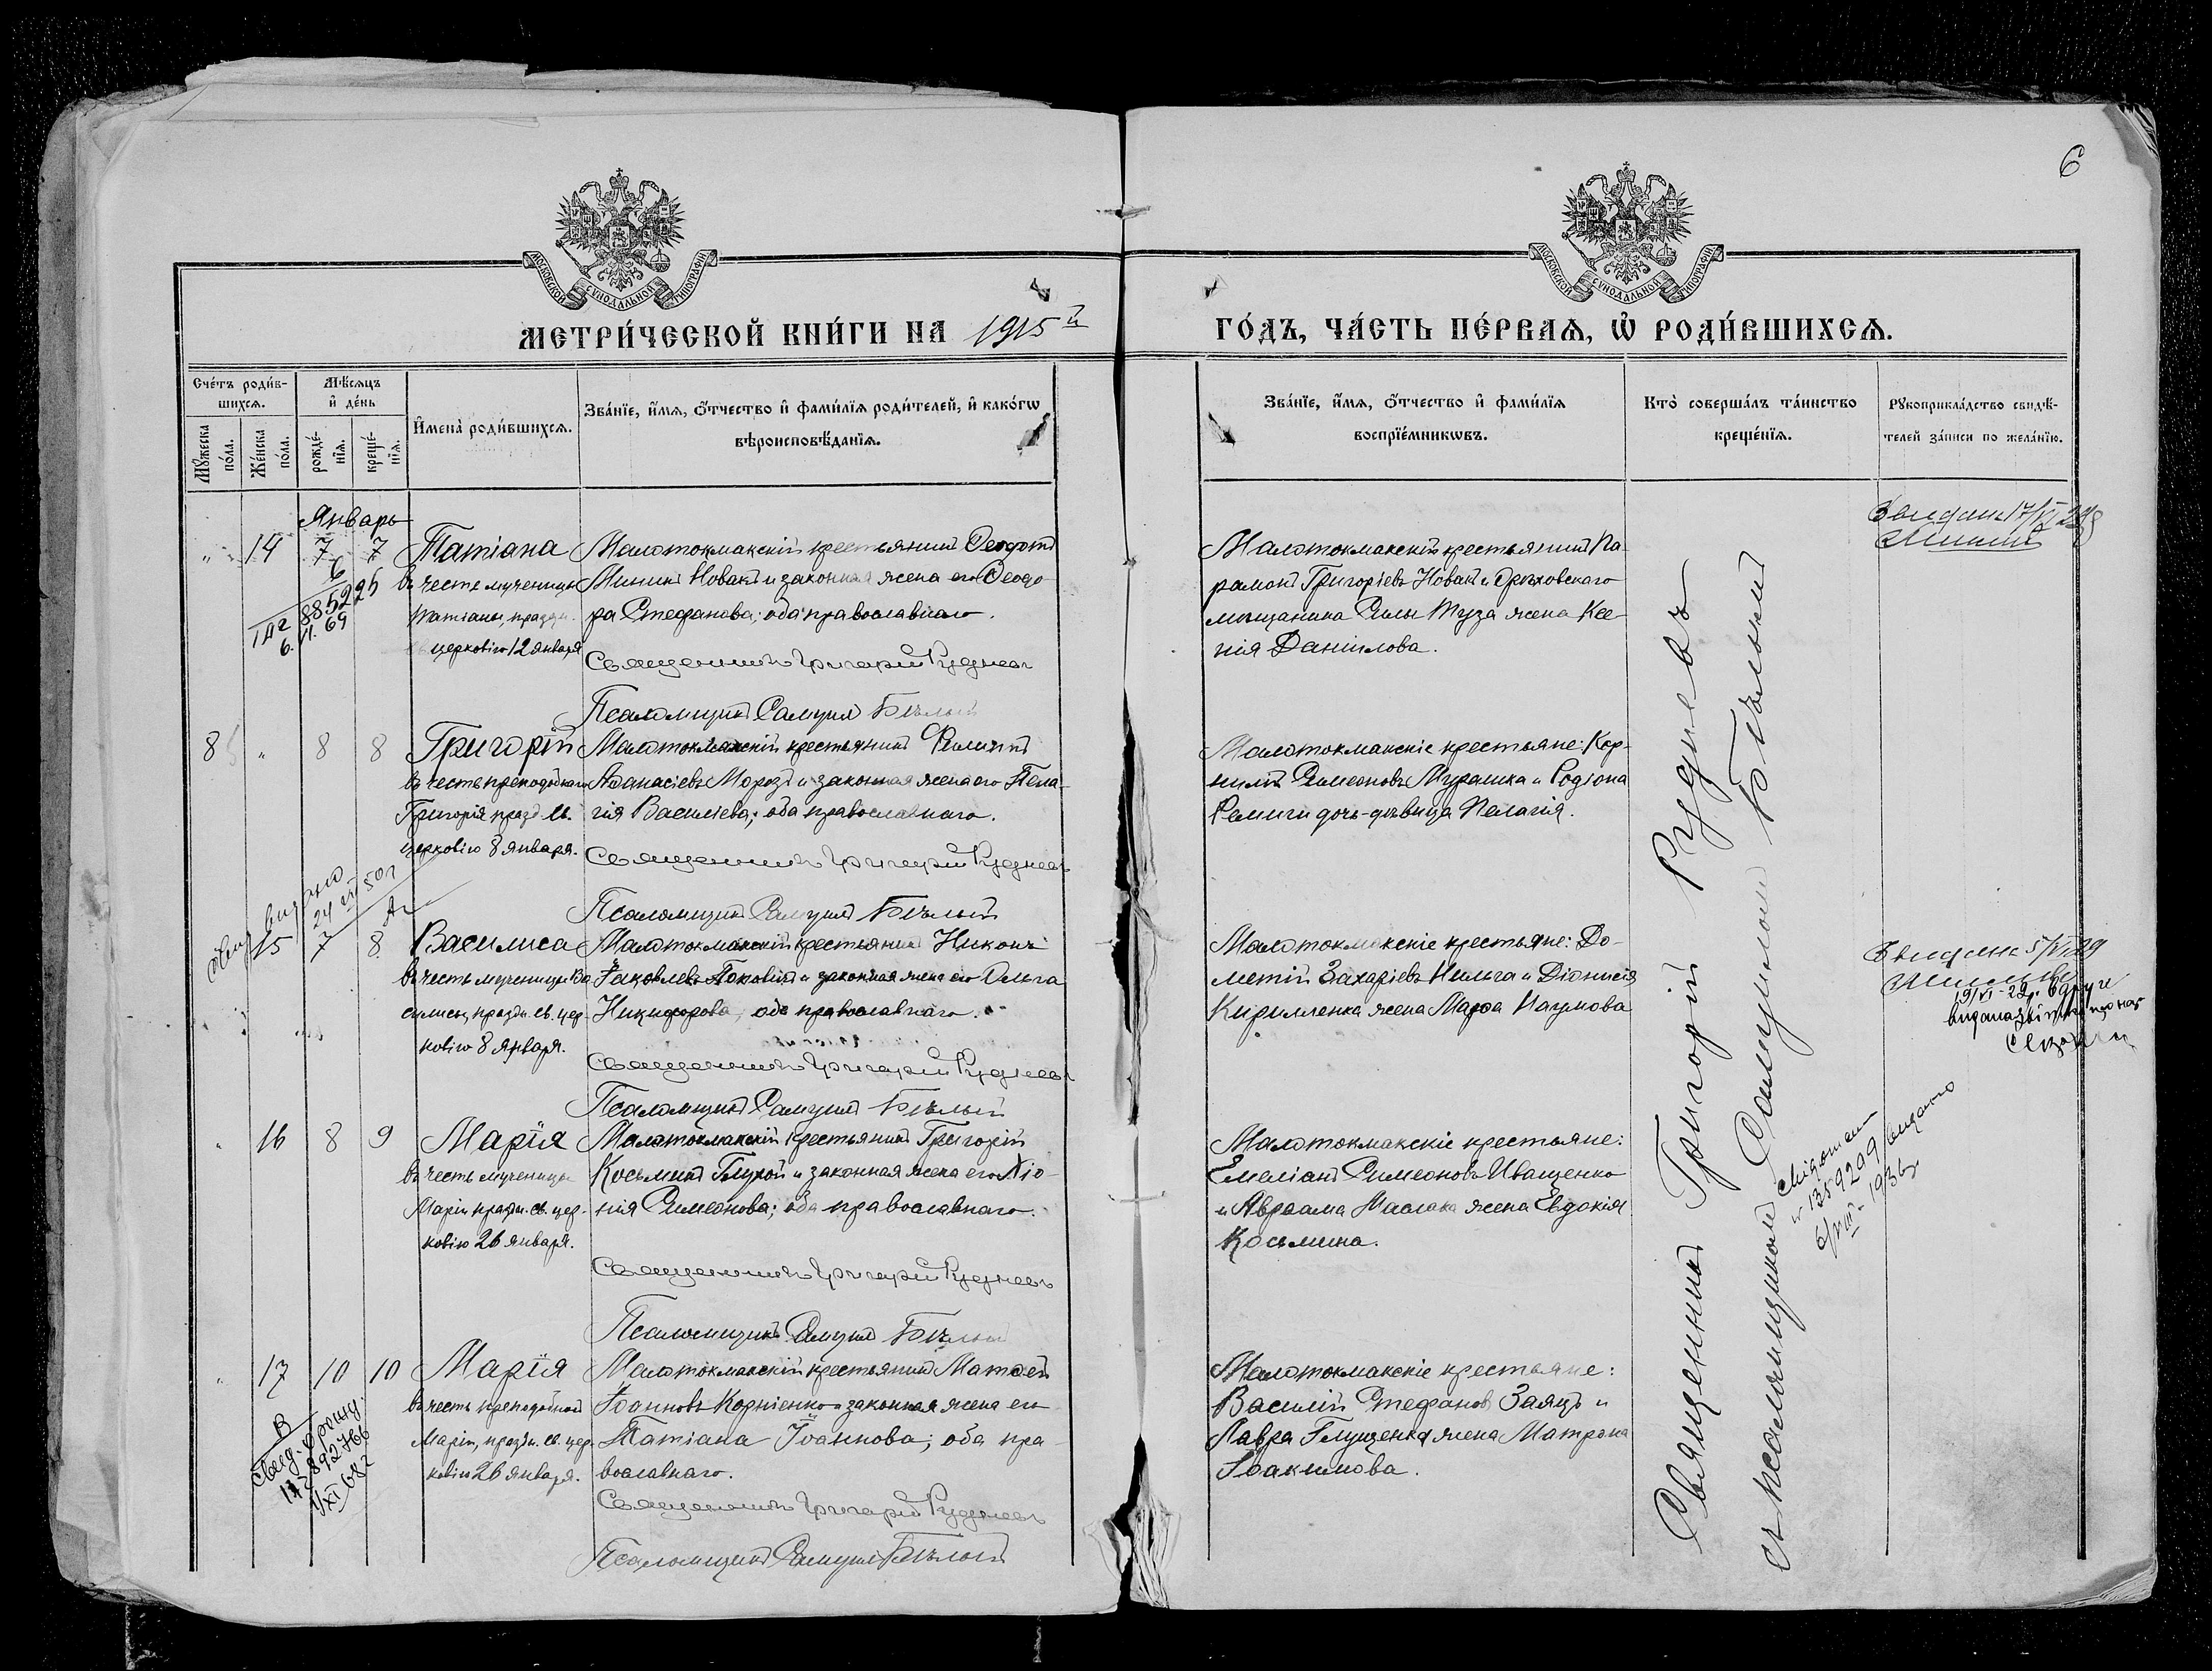 6
МОСКОВСКОЙ СѴНОДАЛЬНОЙ ТИПОГРАФІИ
МОСКОВСКОЙ СѴНОДАЛЬНОЙ ТИПОГРАФІИ
МЕТРИ́ЧЕСКОЙ КНИ́ГИ НА 1915й ГО́ДЪ, ЧА́СТЬ ПЕ́РВАѦ, Ѡ҆ РОДИ́ВШИХСѦ.
Сче́тъ роди́в-
шихсѧ.
Мꙋ́жеска по́ла.
Же́нска по́ла.
Мѣ́сѧцъ
и҆ де́нь
рожде́-
нїѧ.
креще́-
нїѧ.
И҆мена̀ роди́вшихсѧ.
Зва́нїе, и҆́мѧ, ѻ҆́тчество и҆ фами́лїѧ роди́телей, и҆ како́гѡ
вѣроисповѣ́данїѧ.
Зва́нїе, и҆́мѧ, ѻ҆́тчество и҆ фами́лїѧ
воспрїе́мникѡвъ.
Кто̀ соверша́лъ та́инство
креще́нїѧ.
Рꙋкоприкла́дство свидѣ́-
телей за́писи по жела́нїю.
Январь
" 14 7 7 Татіана
въ честь мученицы
Татіаны, праздн.
церковію 12 января
Малотокмакскій крестьянинъ Ѳеодотъ
Мининъ Новакъ и законная жена его Ѳеодо-
ра Стефанова; оба православнаго.
Священникъ Григорій Рудневъ
Псаломщикъ Самуилъ Бѣлый
Малотокмакскій крестьянинъ Па-
рамонъ Григоріевъ Новакъ и Орѣховскаго
мѣщанина Силы Туза жена Ксе-
нія Даніилова.
6. VI. 69
8 " 8 8 Григорій
въ честь преподобнаго
Григорія празд. св.
церковію 8 января.
Малотокмакскій крестьянинъ Филиппъ
Аѳанасіевъ Морозъ и законная жена его Пела-
гія Василіева; оба православнаго.
Священникъ Григорій Рудневъ
Псаломщикъ Самуилъ Бѣлый
Малотокмакскіе крестьяне: Кор-
нилій Симеоновъ Мурашка и Родіона
дочь-дѣвица Пелагія.
видано
24 VII 50 г
15 7 8 Василиса
въ честь мученицы Ва-
силисы, праздн. св. цер-
ковію 8 января.
Малотокмакскій крестьянинъ Никонъ
Іаковлевъ и законная жена его Ольга
Никифорова, оба православнаго.
Священникъ Григорій Рудневъ
Псаломщикъ Самуилъ Бѣлый
Малотокмакскіе крестьяне: До-
метій Захаріевъ и Діонисія
Кириленка жена Марѳа Наумова
5/VI 29
19/VI-29р.
" 16 8 9 Марія
въ честь мученицы
Маріи праздн. св. цер-
ковію 26 января.
Малотокмакскій крестьянинъ Григорій
Косьминъ Глухой и законная жена его Хіо-
нія Симеонова; оба православнаго.
Священникъ Григорій Рудневъ
Псаломщикъ Самуилъ Бѣлый
Малотокмакскіе крестьяне:
Емеліанъ Симеоновъ Иващенко
и Авраама Маслака жена Евдокія
Косьмина.
" 17 10 10 Марія
въ честь преподобной
Маріи, праздн. св. цер-
ковію 26 января.
Малотокмакскій крестьянинъ Матѳей
Іоанновъ Корніенко и законная жена его
Татіана Іоаннова; оба пра-
вославнаго.
Священникъ Григорій Рудневъ
Псаломщикъ Самуилъ Бѣлый
Малотокмакскіе крестьяне:
Василій Стефановъ Заяцъ и
Лавра Глущенка жена Матрона
Іоакимова.
Священникъ Григорій Рудневъ
съ псаломщикомъ Самуиломъ Бѣлымъ